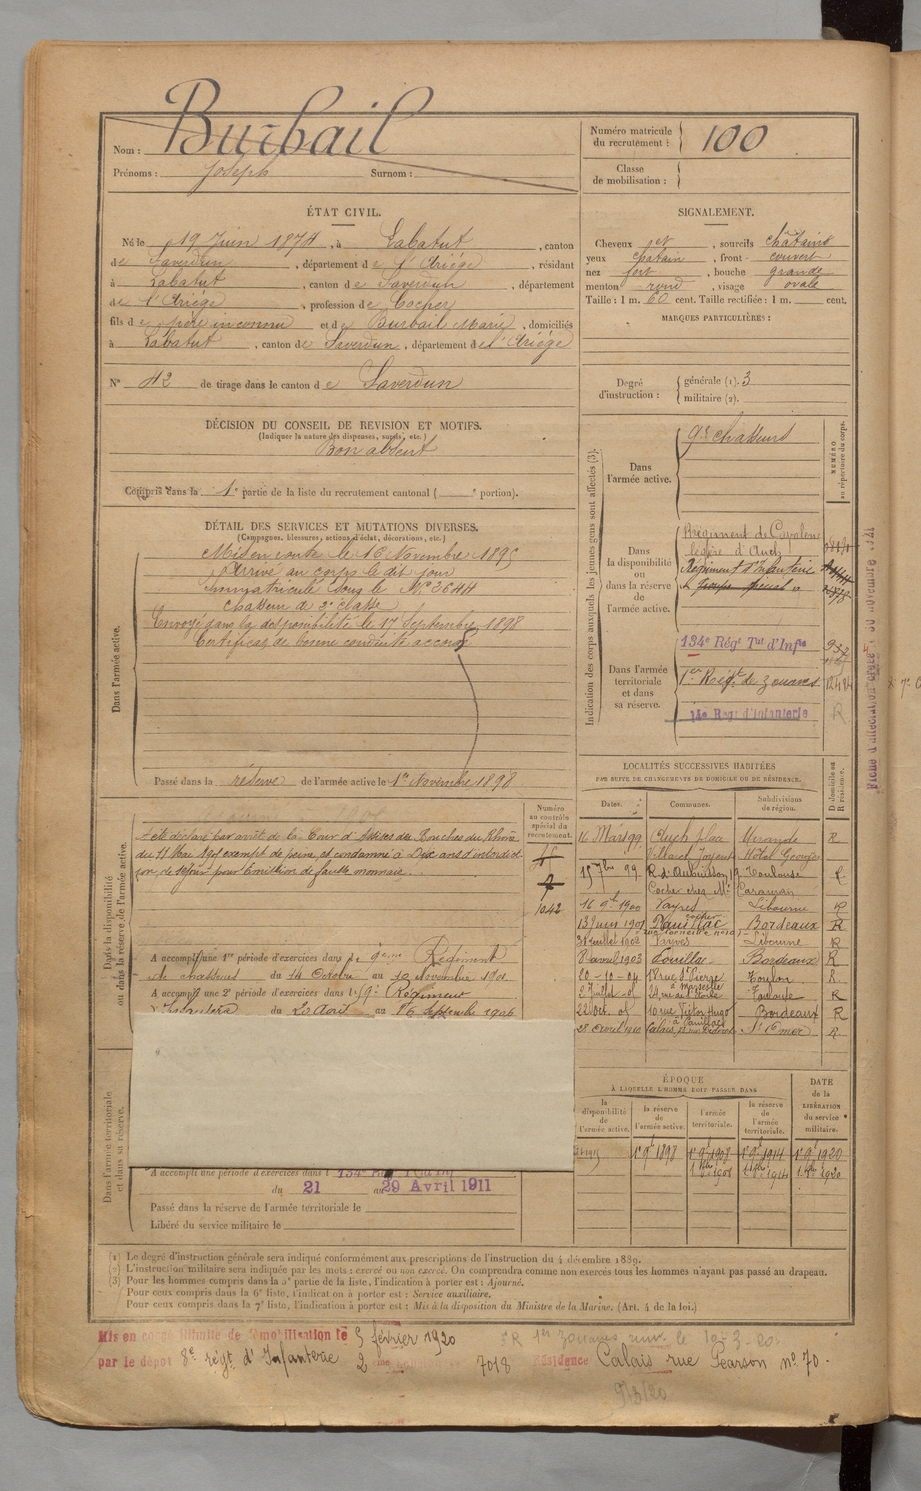 Nom : Burbail
Prénoms : Joseph Surnom :
Numéro matricule du recrutement : 100
Classe de mobilisation :
ÉTAT CIVIL.
Né le 19 Juin 1874, à Labatut, canton
de Saverdun, département de l'Ariége, résidant
à Labatut, canton de Saverdun, département
de l'Ariége, profession de Cocher
fils de père inconnu et de Burbail Marie, domiciliés
à Labatut, canton de Saverdun, département de l'Ariége
N° 42 de tirage dans le canton de Saverdun
SIGNALEMENT.
Cheveux et, sourcils châtains
yeux chatain, front couvert
nez fort, bouche grande
menton rond, visage ovale
Taille : 1 m. 60 cent. Taille rectifiée : 1 m. cent.
MARQUES PARTICULIÈRES :
Degré d'instruction : générale (1). 3
militaire (2).
DÉCISION DU CONSEIL DE REVISION ET MOTIFS.
(Indiquer la nature des dispenses, sursis, etc.)
Bon absent
Compris dans la 1e partie de la liste du recrutement cantonal ( portion).
DÉTAIL DES SERVICES ET MUTATIONS DIVERSES.
(Campagnes, blessures, actions d'éclat, décorations, etc.)
Dans l'armée active.
Mis en route le 16 Novembre 1895
Arrivé au corps le dit jour
Immatriculé sous le N° 3644
chasseur de 2e classe
Envoyé dans la disponibilité le 17 Septembre 1898
Certificat de bonne conduite accordé
Passé dans la réserve de l'armée active le 1er Novembre 1898
Indication des corps auxquels les jeunes gens sont affectés (3).
NUMÉRO au répertoire du corps.
Dans l'armée active.
9e chasseurs
Dans la disponibilité ou dans la réserve de l'armée active.
Régiment de Cavalerie
légère d'Auch
Régiment d'Infanterie
Dans l'armée territoriale et dans sa réserve.
134e Régt Tal d'Infie
1er Régt de zouaves
Regt d'Infanterie
Dans la disponibilité ou dans la réserve de l'armée active.
Numéro au contrôle spécial du recrutement.
1042
A été déclaré par arrêt de la Cour d'Assises des Bouches du Rhône
du 11 Mai exempt de peine, et condamné à Dix ans d'interdic
tion de séjour pour Emission de fausse monnaie.
A accompli une 1re période d'exercices dans le 9eme Régiment
de chasseurs du 14 Octobre au 10 Novembre 1901
A accompli une 2e période d'exercices dans le 59e Régiment
du 20 Août au 16 Septembre 1906
LOCALITÉS SUCCESSIVES HABITÉES
PAR SUITE DE CHANGEMENTS DE DOMICILE OU DE RÉSIDENCE.
Dates. Communes. Subdivisions de région. D. domicile ou R. résidence.
16 Mars 99 Auch place Mirande R
Villaret Joyeuse Hôtel Georges
15 7bre 99 R. d'Aubuisson 19 Toulouse R
Cocher chez Mr Caraman
16 9bre 1900 Vayres Libourne R
13 Juin 1901 Pauillac Bordeaux R
31 Juillet 1902 Libourne R
8 avril 1903 Pouillac Bordeaux R
20-10-04 18 rue St Pierre à Marseille Toulon R
2 Juillet Toulouse R
22 Oct. 10 rue Victor Hugo à Pauillac Bordeaux R
28 Avril 1910 Calais St Omer R
ÉPOQUE
À LAQUELLE L'HOMME DOIT PASSER DANS
la disponibilité de l'armée active. la réserve de l'armée active. l'armée territoriale. la réserve de l'armée territoriale.
DATE de la LIBÉRATION du service militaire.
1er 9bre 1898 1er 9bre 1908 1er 9bre 1914 1er 9bre 1920
Dans l'armée territoriale et dans sa réserve.
A accompli une période d'exercices dans l 134e
du 21 au 29 Avril 1911
Passé dans la réserve de l'armée territoriale le
Libéré du service militaire le
(1) Le degré d'instruction générale sera indiqué conformément aux prescriptions de l'instruction du 4 décembre 1889.
(2) L'instruction militaire sera indiquée par les mots : exercé ou non exercé. On comprendra comme non exercés tous les hommes n'ayant pas passé au drapeau.
(3) Pour les hommes compris dans la 5e partie de la liste, l'indication à porter est : Ajourné.
Pour ceux compris dans la 6e liste, l'indication à porter est : Service auxiliaire.
Pour ceux compris dans la 7e liste, l'indication à porter est : Mis à la disposition du Ministre de la Marine. (Art. 4 de la loi.)
Mis en congé illimité de démobilisation le 5 février 1920
par le dépôt 8e régt d'Infanterie 2 7018 Résidence Calais rue Pearson n° 70.
9/3/20